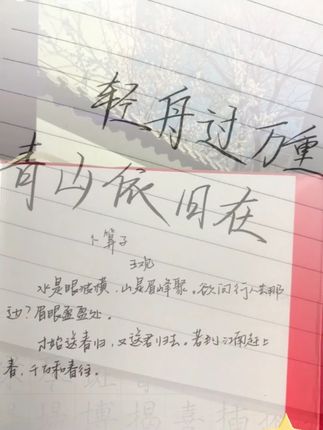 轻舟过万重
青山依旧在
卜算子
王观
水是眼波横,山是眉峰聚。欲问行人去那
边?眉眼盈盈处。
才始送春归,又送君归去。若到江南赶上
春,千万和春住。